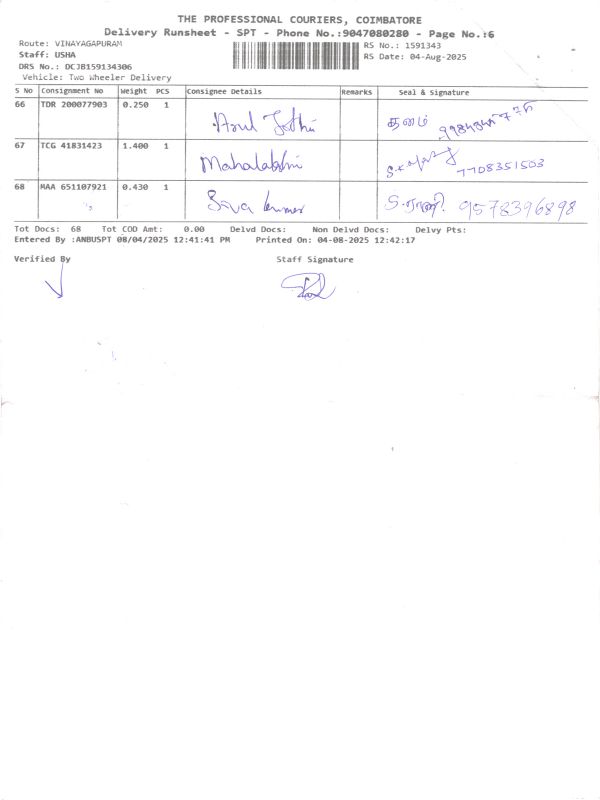 THE PROFESSIONAL COURIERS, COIMBATORE
Delivery Runsheet - SPT - Phone No.:9047080280 - Page No.:6
Route: VINAYAGAPURAM
RS No.: 1591343
Staff: USHA
RS Date: 04-Aug-2025
DRS No.: DCJB159134306
Vehicle: Two Wheeler Delivery
S No Consignment No Weight PCS Consignee Details Remarks Seal & Signature
66 TDR 200077903 0.250 1 Arul Jothi
67 TCG 41831423 1.400 1 Mahalakshmi 7708351503
68 MAA 651107921 0.430 1 Siva Kumar S. ராணி. 9578396898
Tot Docs: 68 Tot COD Amt: 0.00 Delvd Docs: Non Delvd Docs: Delvy Pts:
Entered By :ANBUSPT 08/04/2025 12:41:41 PM Printed On: 04-08-2025 12:42:17
Verified By Staff Signature